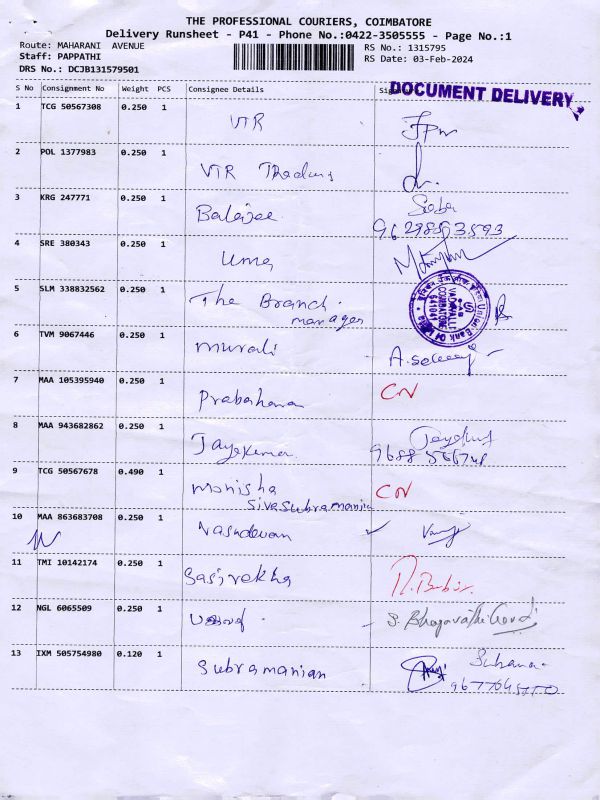 THE PROFESSIONAL COURIERS, COIMBATORE
Delivery Runsheet - P41 - Phone No.:0422-3505555 - Page No.:1
Route: MAHARANI AVENUE
RS No.: 1315795
Staff: PAPPATHI
RS Date: 03-Feb-2024
DRS No.: DCJB131579501
S No Consignment No Weight PCS Consignee Details
DOCUMENT DELIVERY
1 TCG 50567308 0.250 1 VTR
2 POL 1377983 0.250 1 VTR
3 KRG 247771 0.250 1 Balajee
4 SRE 380343 0.250 1 Uma
5 SLM 338832562 0.250 1 The Branch
manager
6 TVM 9067446 0.250 1 murali
7 MAA 105395940 0.250 1 Prabahara CN
8 MAA 943682862 0.250 1 Jayakumar
9 TCG 50567678 0.490 1 monisha CN
Sivasubramaniam
10 MAA 863683708 0.250 1 Vasudevan
11 TMI 10142174 0.250 1 Sasirekha
12 NGL 6065509 0.250 1
13 IXM 505754980 0.120 1 Subramanian